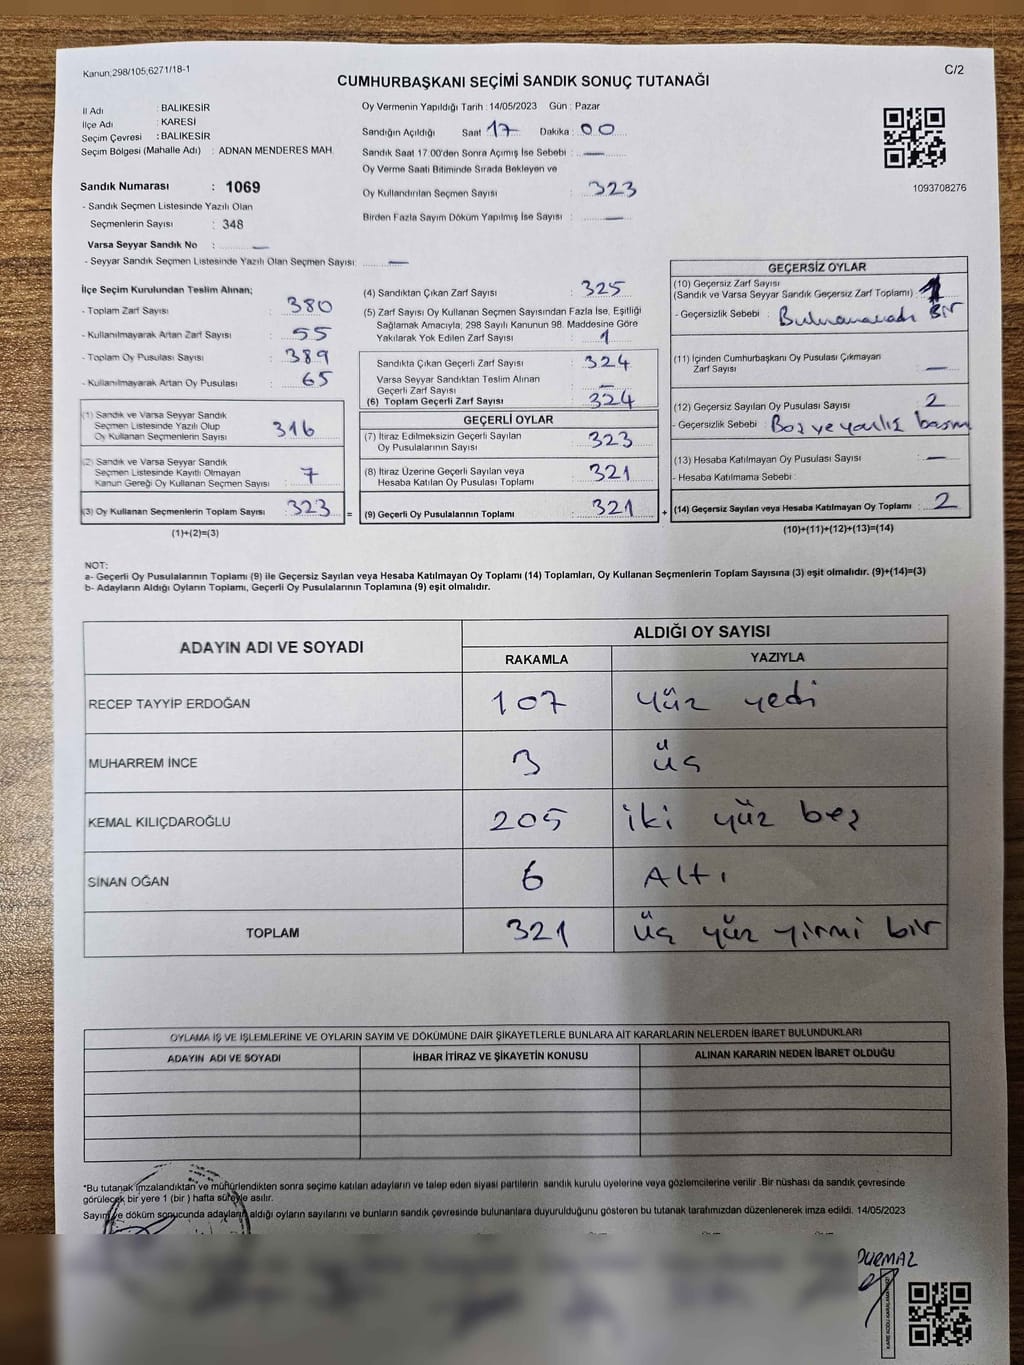 Kanun;298/105;6271/18-1
C/2
CUMHURBAŞKANI SEÇİMİ SANDIK SONUÇ TUTANAĞI
İl Adı : BALIKESİR
İlçe Adı : KARESİ
Seçim Çevresi : BALIKESİR
Seçim Bölgesi (Mahalle Adı) : ADNAN MENDERES MAH.
Sandık Numarası : 1069
- Sandık Seçmen Listesinde Yazılı Olan
Seçmenlerin Sayısı : 348
Varsa Seyyar Sandık No : —
- Seyyar Sandık Seçmen Listesinde Yazılı Olan Seçmen Sayısı: —
Oy Vermenin Yapıldığı Tarih : 14/05/2023 Gün : Pazar
Sandığın Açıldığı Saat 17 Dakika : 00
Sandık Saat 17:00'den Sonra Açımış İse Sebebi : —
Oy Verme Saati Bitiminde Sırada Bekleyen ve
Oy Kullandırılan Seçmen Sayısı : 323
Birden Fazla Sayım Döküm Yapılmış İse Sayısı : —
1093708276
İlçe Seçim Kurulundan Teslim Alınan;
- Toplam Zarf Sayısı : 380
- Kullanılmayarak Artan Zarf Sayısı : 55
- Toplam Oy Pusulası Sayısı : 389
- Kullanılmayarak Artan Oy Pusulası : 65
(1) Sandık ve Varsa Seyyar Sandık
Seçmen Listesinde Yazılı Olup
Oy Kullanan Seçmenlerin Sayısı : 316
(2) Sandık ve Varsa Seyyar Sandık
Seçmen Listesinde Kayıtlı Olmayan
Kanun Gereği Oy Kullanan Seçmen Sayısı : 7
(3) Oy Kullanan Seçmenlerin Toplam Sayısı : 323 =
(1)+(2)=(3)
(4) Sandıktan Çıkan Zarf Sayısı : 325
(5) Zarf Sayısı Oy Kullanan Seçmen Sayısından Fazla İse, Eşitliği
Sağlamak Amacıyla, 298 Sayılı Kanunun 98. Maddesine Göre
Yakılarak Yok Edilen Zarf Sayısı : 1
Sandıkta Çıkan Geçerli Zarf Sayısı : 324
Varsa Seyyar Sandıktan Teslim Alınan
Geçerli Zarf Sayısı : —
(6) Toplam Geçerli Zarf Sayısı : 324
GEÇERLİ OYLAR
(7) İtiraz Edilmeksizin Geçerli Sayılan
Oy Pusulalarının Sayısı : 323
(8) İtiraz Üzerine Geçerli Sayılan veya
Hesaba Katılan Oy Pusulası Toplamı : 321
(9) Geçerli Oy Pusulalarının Toplamı : 321 +
GEÇERSİZ OYLAR
(10) Geçersiz Zarf Sayısı
(Sandık ve Varsa Seyyar Sandık Geçersiz Zarf Toplamı) : 1
- Geçersizlik Sebebi : Bulunamadı Bir
(11) İçinden Cumhurbaşkanı Oy Pusulası Çıkmayan
Zarf Sayısı : —
(12) Geçersiz Sayılan Oy Pusulası Sayısı : 2
- Geçersizlik Sebebi : Boş ve yanlış basım
(13) Hesaba Katılmayan Oy Pusulası Sayısı : —
- Hesaba Katılmama Sebebi :
(14) Geçersiz Sayılan veya Hesaba Katılmayan Oy Toplamı : 2
(10)+(11)+(12)+(13)=(14)
NOT:
a- Geçerli Oy Pusulalarının Toplamı (9) ile Geçersiz Sayılan veya Hesaba Katılmayan Oy Toplamı (14) Toplamları, Oy Kullanan Seçmenlerin Toplam Sayısına (3) eşit olmalıdır. (9)+(14)=(3)
b- Adayların Aldığı Oyların Toplamı, Geçerli Oy Pusulalarının Toplamına (9) eşit olmalıdır.
ADAYIN ADI VE SOYADI ALDIĞI OY SAYISI
RAKAMLA YAZIYLA
RECEP TAYYİP ERDOĞAN 107 yüz yedi
MUHARREM İNCE 3 üç
KEMAL KILIÇDAROĞLU 205 iki yüz beş
SİNAN OĞAN 6 Altı
TOPLAM 321 üç yüz yirmi bir
OYLAMA İŞ VE İŞLEMLERİNE VE OYLARIN SAYIM VE DÖKÜMÜNE DAİR ŞİKAYETLERLE BUNLARA AİT KARARLARIN NELERDEN İBARET BULUNDUKLARI
ADAYIN ADI VE SOYADI İHBAR İTİRAZ VE ŞİKAYETİN KONUSU ALINAN KARARIN NEDEN İBARET OLDUĞU
*Bu tutanak imzalandıktan ve mühürlendikten sonra seçime katılan adayların ve talep eden siyasi partilerin sandık kurulu üyelerine veya gözlemcilerine verilir .Bir nüshası da sandık çevresinde
görülecek bir yere 1 (bir ) hafta süreyle asılır.
Sayım ve döküm sonucunda adayların aldığı oyların sayılarını ve bunların sandık çevresinde bulunanlara duyurulduğunu gösteren bu tutanak tarafımızdan düzenlenerek imza edildi. 14/05/2023
DURMAZ